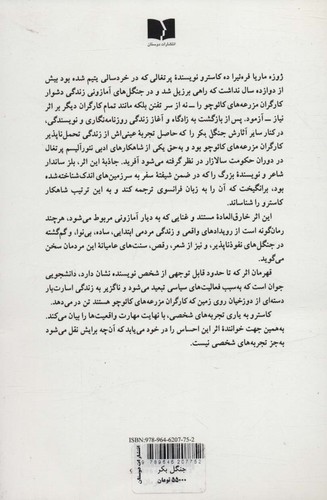 انتشارات دوستان
ژوزه ماریا فره‌ئیرا ده کاسترو نویسندهٔ پرتغالی که در خردسالی یتیم شده بود بیش
از دوازده سال نداشت که راهی برزیل شد و در جنگل‌های آمازونی زندگی دشوار
کارگران مزرعه‌های کائوچو را ــ نه از سر تفنن بلکه مانند تمام کارگران دیگر بر اثر
نیاز ــ آزمود. پس از بازگشت به زادگاه و آغاز زندگی روزنامه‌نگاری و نویسندگی،
در کنار سایر آثارش جنگل بکر را که حاصل تجربهٔ عینی‌اش از زندگی تحمل‌ناپذیر
کارگران مزرعه‌های کائوچو بود و به‌حق یکی از شاهکارهای ادبی نئورآلیسم پرتغال
در دوران حکومت سالازار در نظر گرفته می‌شود آفرید. جاذبهٔ این اثر، بلز ساندرار
شاعر و نویسندهٔ بزرگ را که در ضمن شیفتهٔ سفر به سرزمین‌های اندک‌شناخته‌شده
بود، برانگیخت که آن را به زبان فرانسوی ترجمه کند و به این ترتیب شاهکار
کاسترو را شناساند.
این اثر خارق‌العادهٔ مستند و غنایی که به دیار آمازونی مربوط می‌شود، هرچند
رمان‌گونه است از رویدادهای واقعی و زندگی مردمی ابتدایی، ساده، بی‌نوا، و گم‌گشته
در جنگل‌های نفوذناپذیر، و نیز از شعر، رقص، سنت‌های عامیانهٔ این مردمان سخن
می‌گوید.
قهرمان اثر که تا حدود قابل توجهی از شخص نویسنده نشان دارد، دانشجویی
جوان است که به‌سبب فعالیت‌های سیاسی تبعید می‌شود و ناگزیر به زندگی اسارت‌بار
دسته‌ای از دوزخیان روی زمین که کارگران مزرعه‌های کائوچو هستند تن در می‌دهد.
کاسترو به یاری تجربه‌های شخصی، با نهایت مهارت واقعیت‌ها را بیان می‌کند.
به‌همین جهت خوانندهٔ اثر این احساس را در خود می‌یابد که آن‌چه برایش نقل می‌شود
به‌جز تجربه‌های شخصی نیست.
ISBN: 978-964-6207-75-2
9789646207752
جنگل بکر
۵۵۰۰۰ تومان
انتشارات دوستان